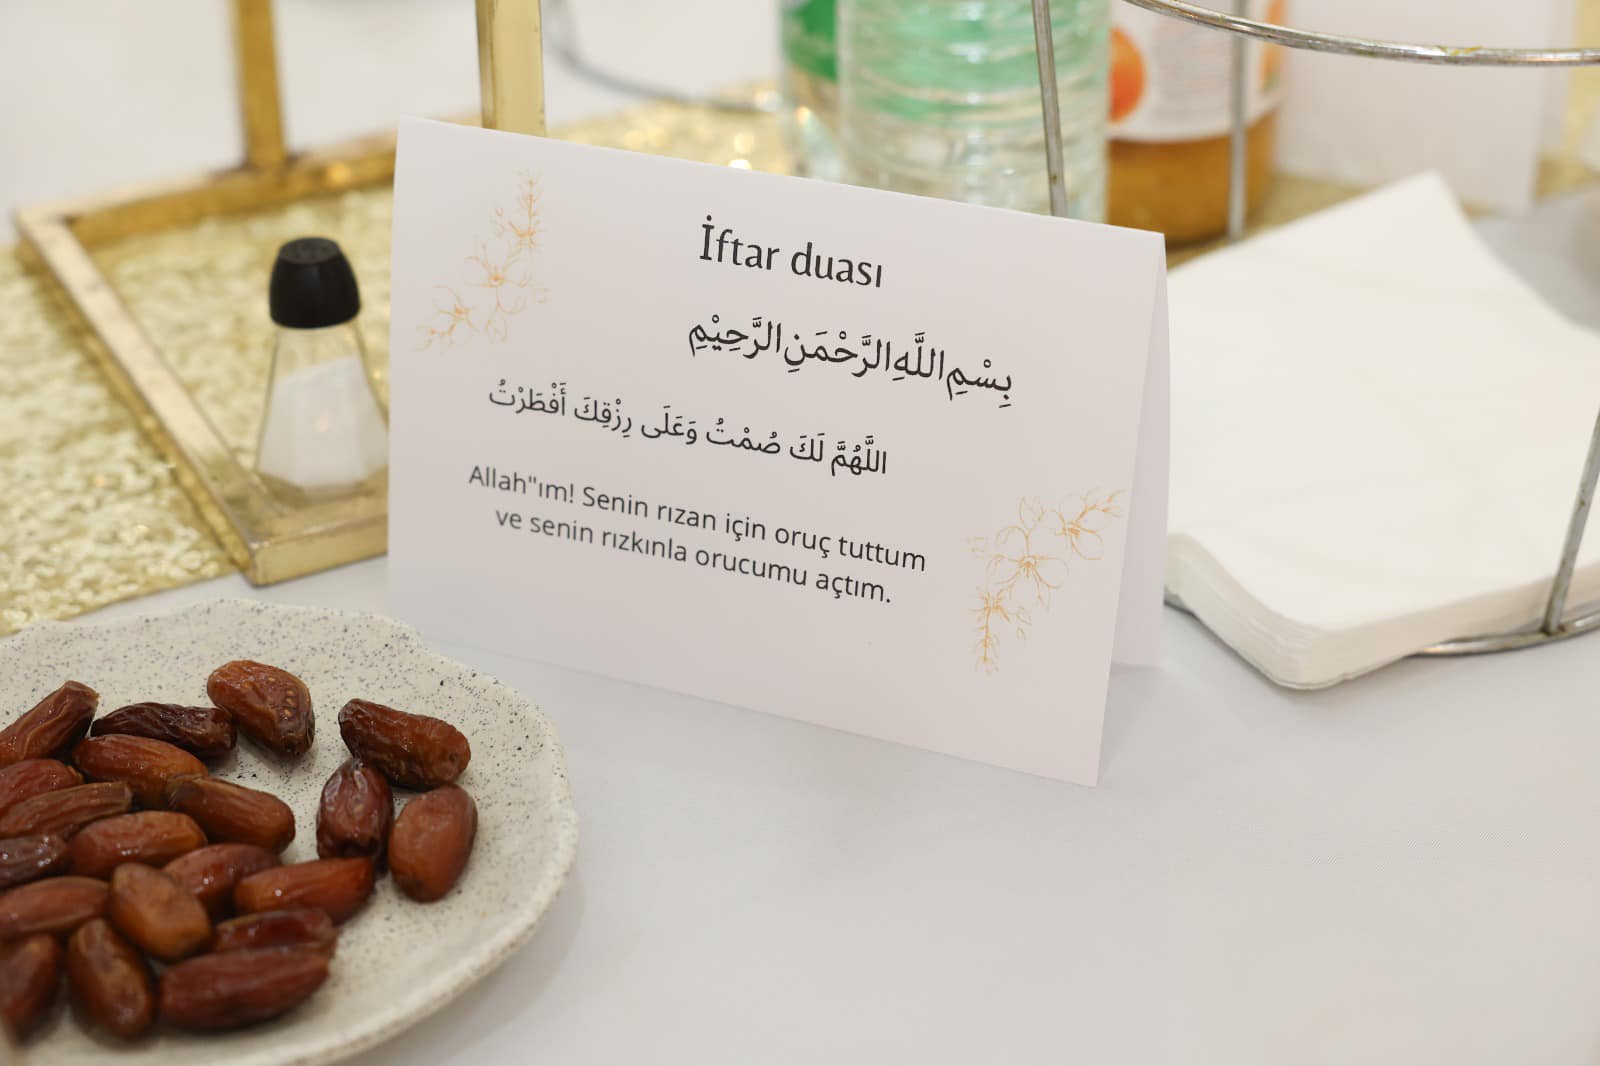 İftar duası
بِسْمِ اللَّهِ الرَّحْمَنِ الرَّحِيْمِ
اللَّهُمَّ لَكَ صُمْتُ وَعَلَى رِزْقِكَ أَفْطَرْتُ
Allah"ım! Senin rızan için oruç tuttum
ve senin rızkınla orucumu açtım.